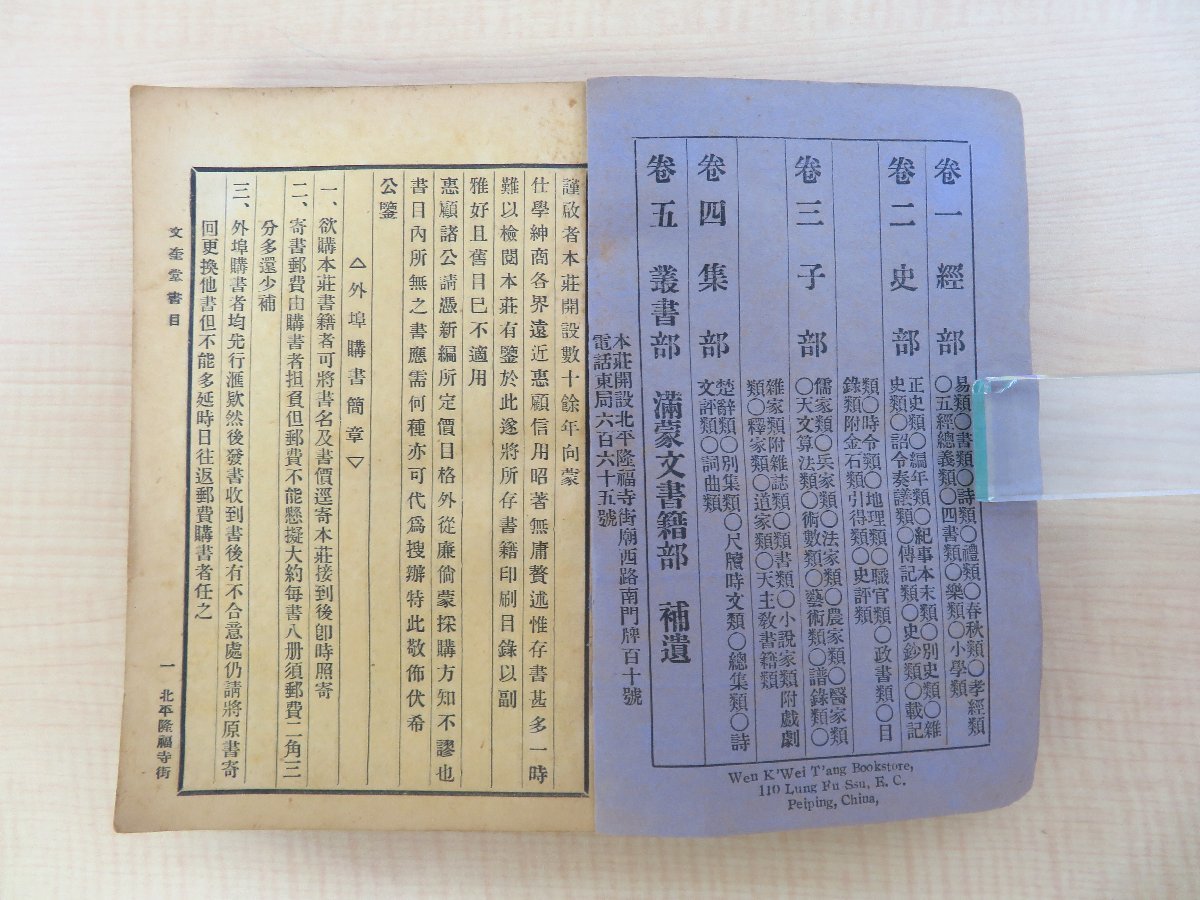 卷一經部
易類〇書類〇詩類〇禮類〇春秋類〇孝經類
〇五經總義類〇四書類〇樂類〇小學類
卷二史部
正史類〇編年類〇紀事本末類〇別史類〇雜
史類〇詔令奏議類〇傳記類〇史鈔類〇載記
類〇時令類〇地理類〇職官類〇政書類〇目
錄類附金石類引得類〇史評類
卷三子部
儒家類〇兵家類〇法家類〇農家類〇醫家類
〇天文算法類〇術數類〇藝術類〇譜錄類〇
雜家類附雜誌類〇類書類〇小說家類附戲劇
類〇釋家類〇道家類〇天主教書籍類
卷四集部
楚辭類〇別集類〇尺牘時文類〇總集類〇詩
文評類〇詞曲類
卷五叢書部 滿蒙文書籍部 補遺
本莊開設北平隆福寺街廟西路南門牌百十號
電話東局六百六十五號
Wen K'Wei T'ang Bookstore,
110 Lung Fu Ssu, E. C.
Peiping, China,
謹啟者本莊開設數十餘年向蒙
仕學紳商各界遠近惠顧信用昭著無庸贅述惟存書甚多一時
難以檢閱本莊有鑒於此遂將所存書籍印刷目錄以副
雅好且舊目已不適用
惠顧諸公請憑新編所定價目格外從廉倘蒙採購方知不謬也
書目內所無之書應需何種亦可代爲搜辦特此敬佈伏希
公鑒
△外埠購書簡章▽
一、欲購本莊書籍者可將書名及書價逕寄本莊接到後卽時照寄
二、寄書郵費由購書者担負但郵費不能懸擬大約每書八册須郵費二角三
分多還少補
三、外埠購書者均先行滙欵然後發書收到書後有不合意處仍請將原書寄
回更換他書但不能多延時日往返郵費購書者任之
文奎堂書目
一
北平隆福寺街